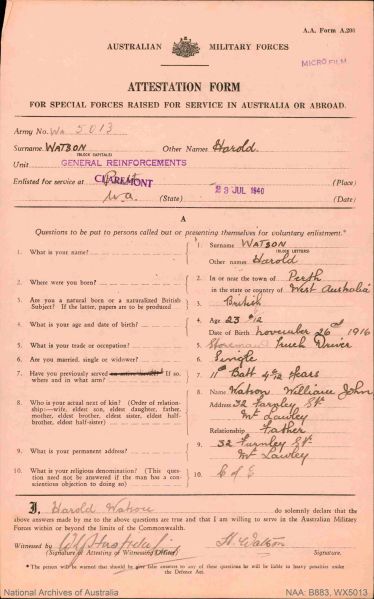 A.A. Form A.200
AUSTRALIAN MILITARY FORCES
MICROFILM
ATTESTATION FORM
FOR SPECIAL FORCES RAISED FOR SERVICE IN AUSTRALIA OR ABROAD.
Army No. Wx 5013
Surname WATSON Other Names Harold
(BLOCK CAPITALS)
Unit GENERAL REINFORCEMENTS
Enlisted for service at CLAREMONT (Place)
W.A. (State) 23 JUL 1940 (Date)
A
Questions to be put to persons called out or presenting themselves for voluntary enlistment.*
1. What is your name?
1. Surname WATSON
(BLOCK LETTERS)
Other names Harold
2. Where were you born?
2. In or near the town of Perth
in the state or country of West Australia
3. Are you a natural born or a naturalized British Subject? If the latter, papers to be produced
3. British
4. What is your age and date of birth?
4. Age 23
Date of Birth november 26 1916
5. What is your trade or occupation?
5. Storeman Truck Driver
6. Are you married, single or widower?
6. Single
7. Have you previously served If so, where and in what arm?
7. 11th Batt years
8. Who is your actual next of kin? (Order of relationship:—wife, eldest son, eldest daughter, father, mother, eldest brother, eldest sister, eldest half-brother, eldest half-sister)
8. Name Watson William John
Address 32 St.
Mt Lawley
Relationship Father
9. What is your permanent address?
9. 32 St.
Mt Lawley
10. What is your religious denomination? (This question need not be answered if the man has a conscientious objection to doing so)
10. C of E
I, Harold Watson do solemnly declare that the
above answers made by me to the above questions are true and that I am willing to serve in the Australian Military
Forces within or beyond the limits of the Commonwealth.
Witnessed by H. Watson
(Signature of Attesting or Witnessing Officer) Signature.
*The person will be warned that should he give false answers to any of these questions he will be liable to heavy penalties under
the Defence Act.
National Archives of Australia
NAA: B883, WX5013